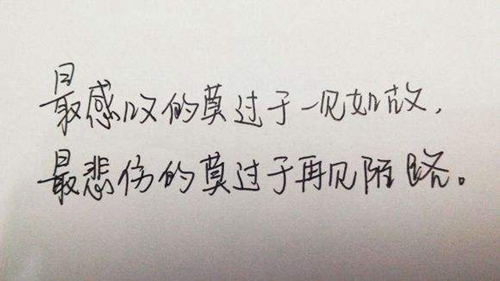 最感叹的莫过于一见如故，
最悲伤的莫过于再见陌路。